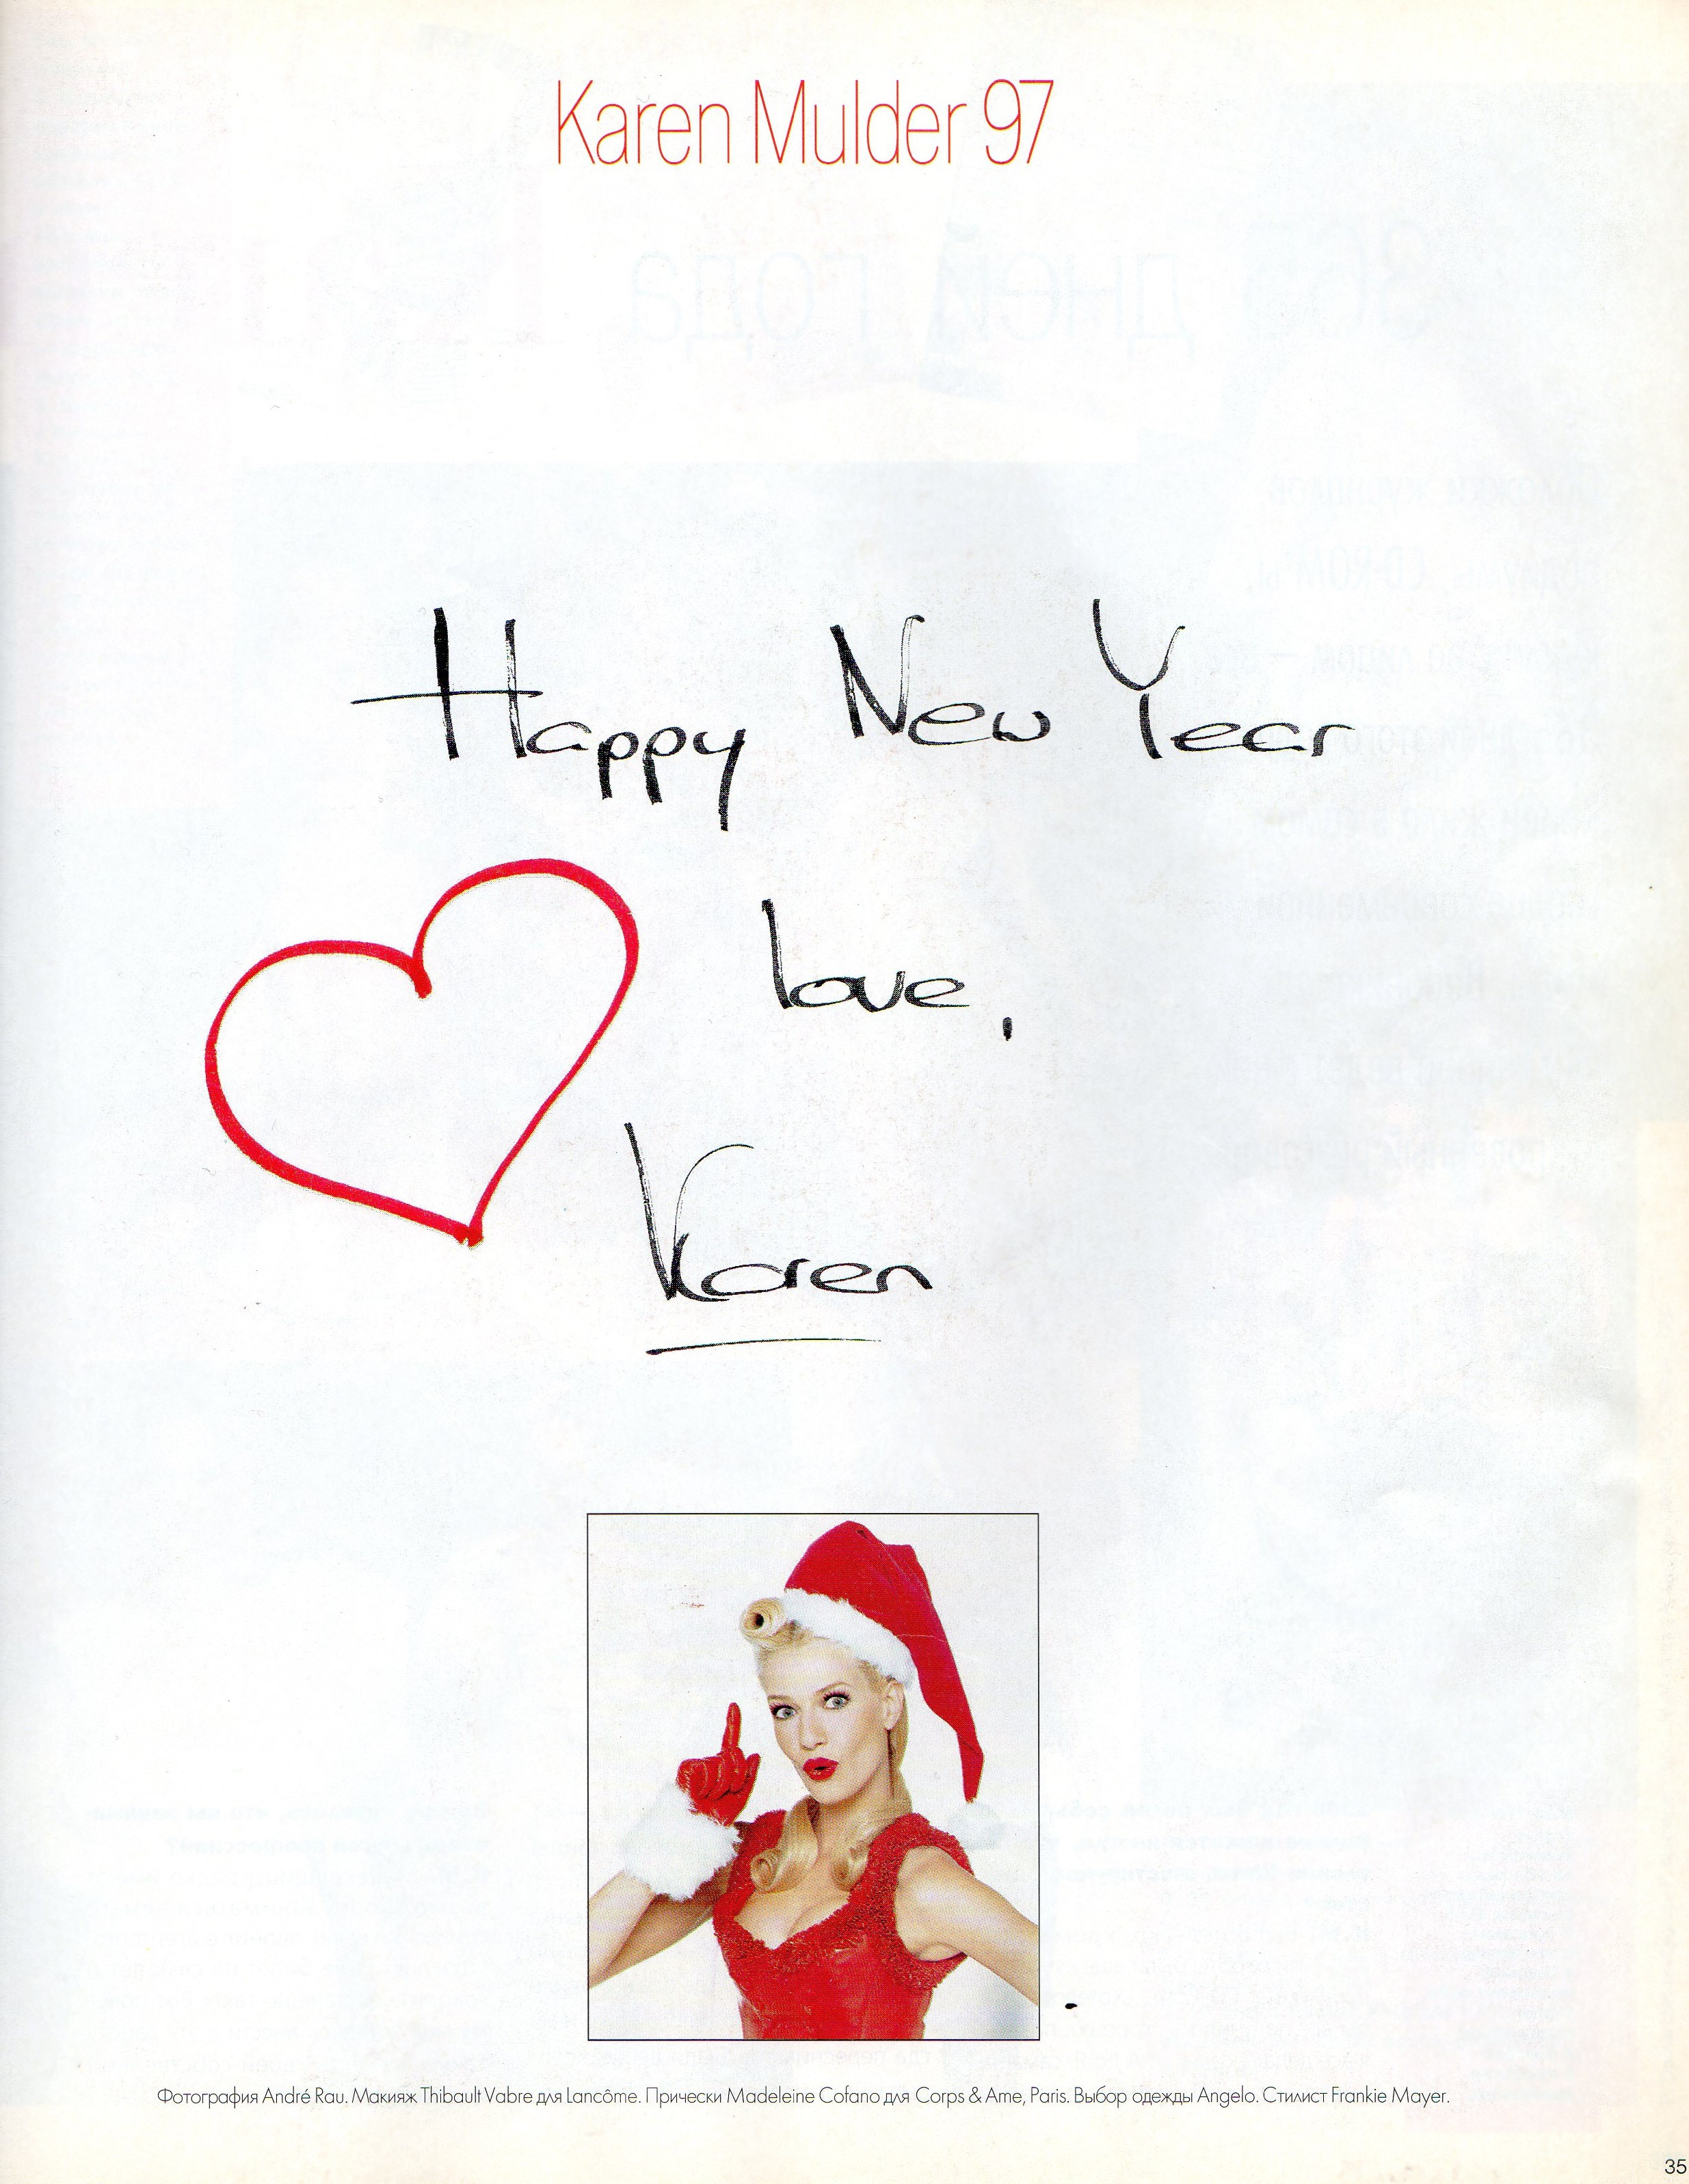 Karen Mulder 97
Happy New Year
love,
Karen
Фотография André Rau. Макияж Thibault Vabre для Lancôme. Прически Madeleine Cofano для Corps & Ame, Paris. Выбор одежды Angelo. Стилист Frankie Mayer.
35